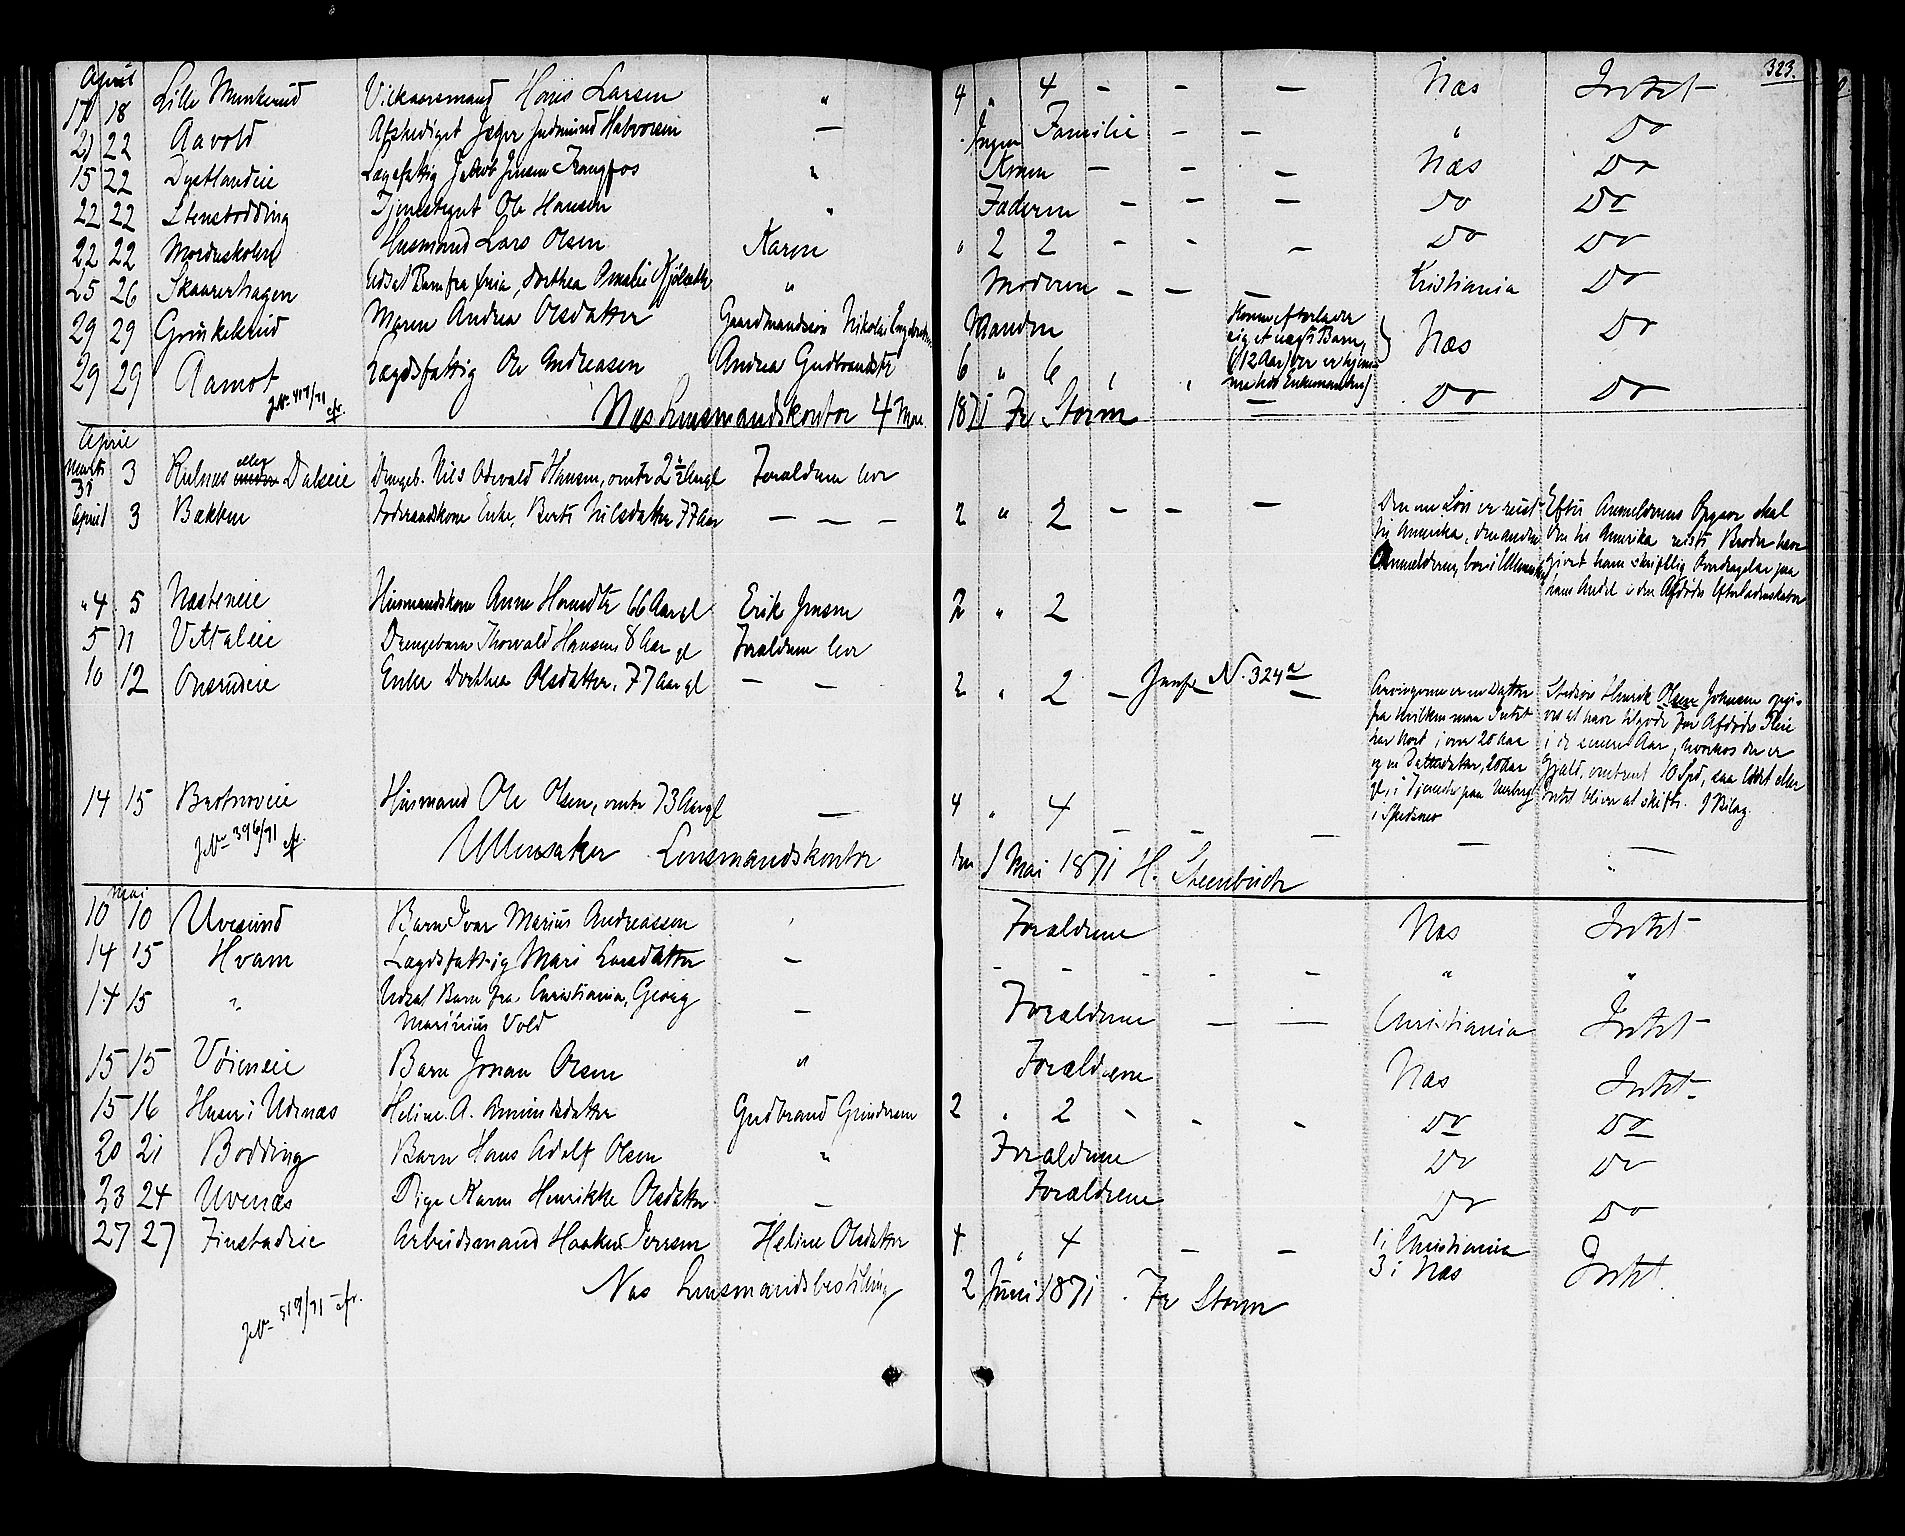 323.
April
17 18 Lille Munkerud Vilkaarsmand Hans Larsen " 4 " 4 - - - Næs Intet
21 22 Aavold Afskediget Jæger Gudmund Halvorsen — Ingen Familie - - " Do
15 22 Dystlandeie Lægdsfattig Jakob Jensen " Konen - - - Næs Do
22 22 Stensrodding Tjenestegut Ole Hansen " Faderen - - - Do Do
22 22 Husmand Lars Olsen Karen " 2 2 - - - Do Do
25 26 Skaarerhagen Udsat Barn fra Xnia, Dorthea Amalie " Moderen - - - Kristiania Do
29 29 Grinkelsrud Maren Andrea Olsdatter Gaardmandssøn Nikolai Manden Konen efterlader
sig et uægte Barn,
(12 Aar) der er hjemme
hos Enkemanden) Næs Do
29 29 Aamot Lægdsfattig Ole Andreasen Andrea Gudbrandsdtr 6 " 6 Do Do
JNr 417/71 cfr.
Næs Lensmandskontor 4 Mai 1871 Fr Storm
April
Marts 31 3 Hulnæs eller Dalseie Drengeb. Nils Odevald Hansen, omtr 2 1/2 Aargl Forældrene lever
April 3 Bakken Foderaadskone Enke, Berte Nilsdatter 77 Aar — — — 2 " 2 - - -
Den ene Søn er reist
til Amerika, den anden
Anmelderen, bor i Ullensaker
Efter Anmelderens Opgave skal
den til Amerika reiste Broder have
givet ham skriftlig Overdragelse paa
hans Andel i den Afdødes Efterladenskaber
" 4 5 Næsteneie Husmandskone Anne Hansdtr 66 Aar gl Erik Jensen 2 " 2
5 11 Vittaleie Drengebarn Thorvald Hansen 8 Aar gl Forældrene lever
10 12 Onsrudeie Enke Dorthea Olsdatter, 77 Aar gl — — 2 " 2 - Jevnfr N. 324 a —
Arvingerne er en Datter
fra hvilken man Intet
har hørt i over 20 Aar
og en Datterdatter, 20 Aar
gl, i Tjeneste paa
i Skedsmo
Stedsøn Henrik Olsen Johnsen opgi-
ves at have tilgode for Afdødes Pleie
i de senere Aar, hvorhos der er
Gjæld, omtrent 10 Spd, saa lidet eller
Intet bliver at skifte. 1 Bilag.
14 15 Husmand Ole Olsen, omtr 73 Aar gl — 4 " 4 - - - — —
JNr 396/71 cfr.
Ullensaker Lensmandskontor den 1 Mai 1871 H. Steenbuch
Maj
10 10 Uvesund Barn Ivar Marius Andreassen Forældrene Næs Intet
14 15 Hvam Lægdsfattig Mari Larsdatter — - - - - " "
14 15 " Udsat Barn fra Christiania, Georg
Marinius Vold — Forældrene — — Christiania Intet
15 15 Vøieneie Barn Johan Olsen " Forældrene Næs Intet
15 16 Huser i Udenæs Heline A. Amundsdatter Gudbrand Gundersen 2 . 2 - - - Do Do
20 21 Bodding Barn Hans Adolf Olsen " Forældrene Do Do
23 24 Uvenæs Pige Karen Henrikke Olsdatter — Forældrene Do Do
27 27 Finstadeie Arbeidsmand Haaken Iversen Heline Olsdatter 4 " 4 - - 1 i Christiania
3 i Næs Intet.
Næs Lensmandsbestilling 2 Juni 1871. Fr Storm
JNr 519/71 cfr.